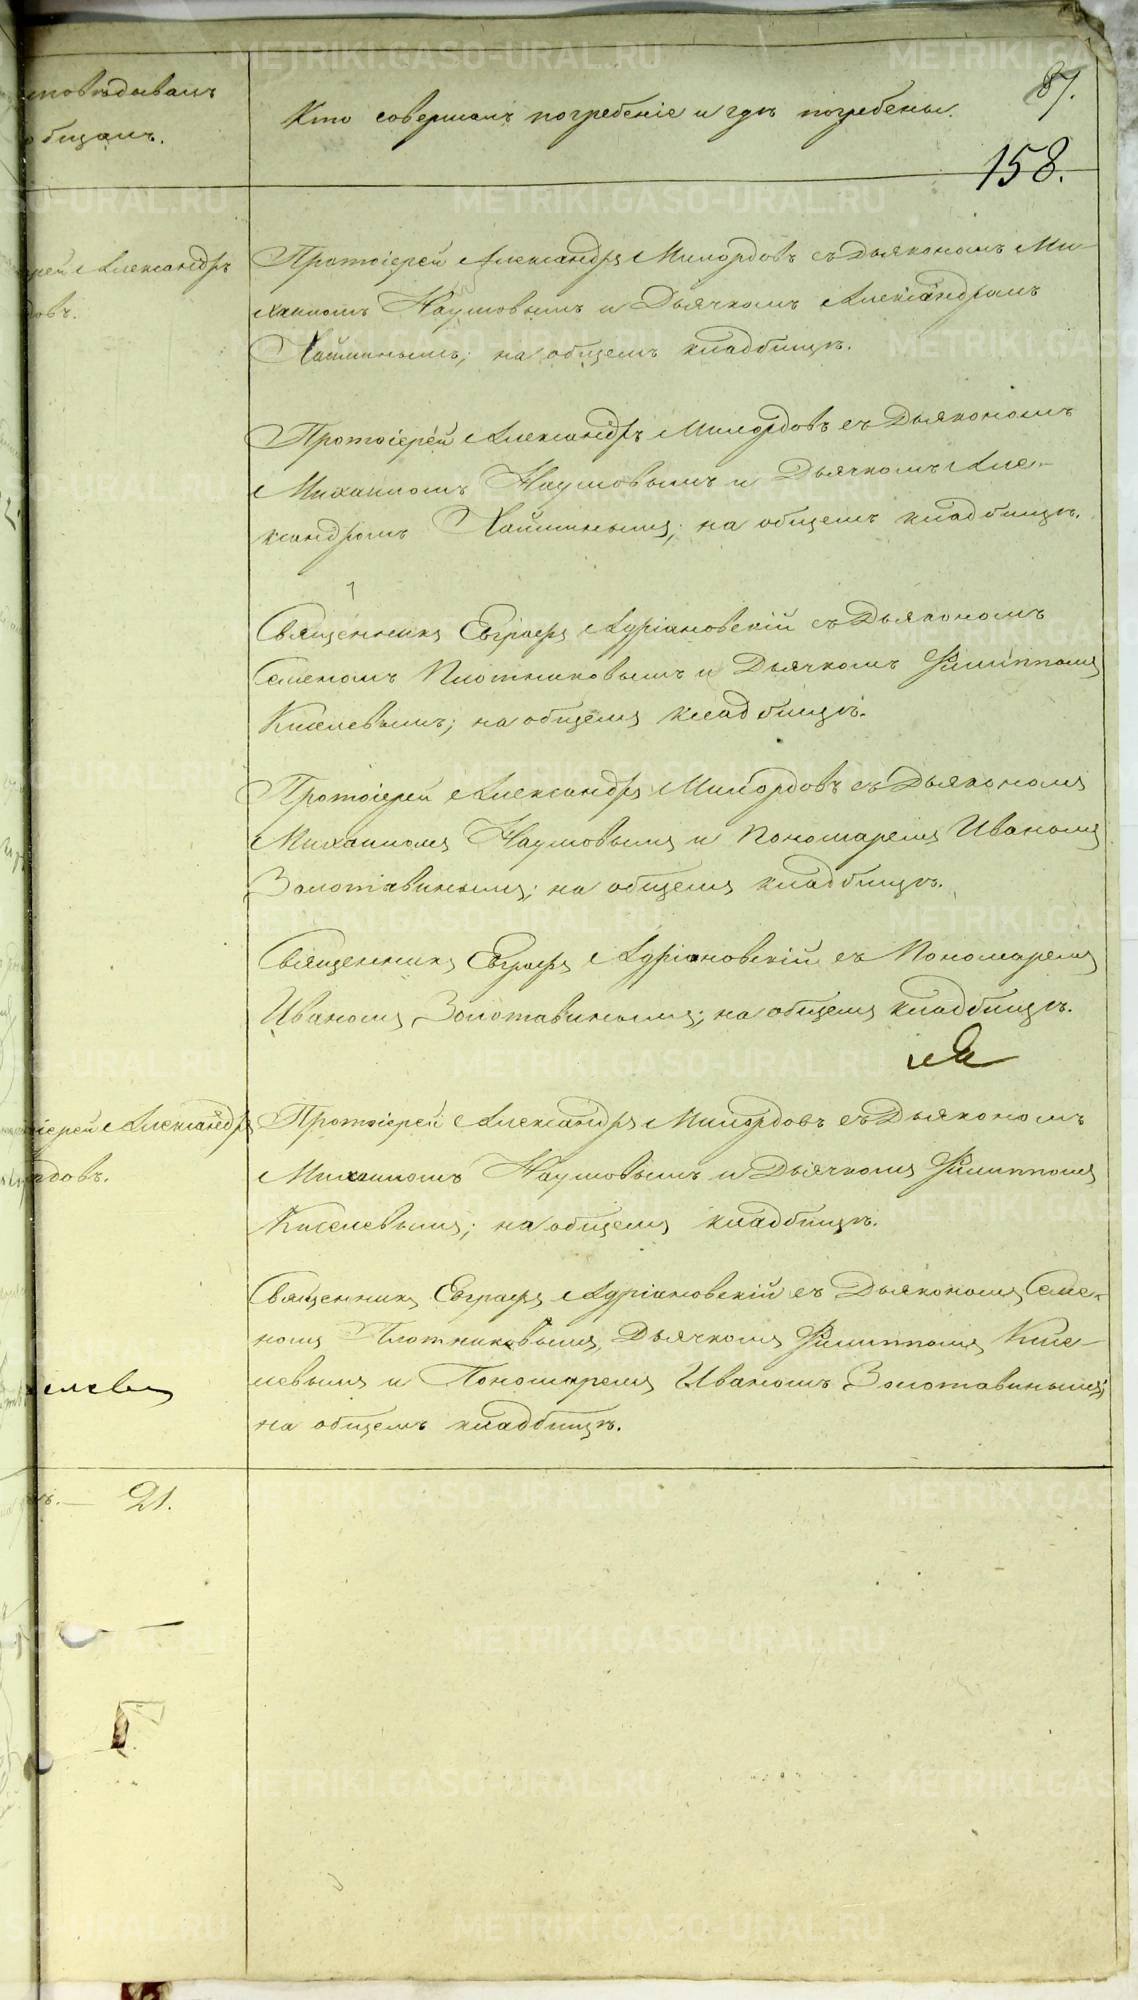 87.
158.
исповѣдывалъ
Кто совершалъ погребеніе и гдѣ погребены.
Александръ
Протоіерей Александръ Милордовъ съ Дьякономъ Ми-
хаиломъ Наумовымъ и Дьячкомъ Александромъ
Хайминымъ; на общемъ кладбищѣ.
Протоіерей Александръ Милордовъ съ Дьякономъ
Михаиломъ Наумовымъ и Дьячкомъ Але-
ксандромъ Хайминымъ; на общемъ кладбищѣ.
Священникъ Евграфъ Адріановскій съ Дьякономъ
Семеномъ Плотниковымъ и Дьячкомъ Филиппомъ
Киселевымъ; на общемъ кладбищѣ.
Протоіерей Александръ Милордовъ съ Дьякономъ
Михаиломъ Наумовымъ и Пономаремъ Иваномъ
Золотавинымъ; на общемъ кладбищѣ.
Священникъ Евграфъ Адріановскій съ Пономаремъ
Иваномъ Золотавинымъ; на общемъ кладбищѣ.
Александръ
Протоіерей Александръ Милордовъ съ Дьякономъ
Михаиломъ Наумовымъ и Дьячкомъ Филиппомъ
Киселевымъ; на общемъ кладбищѣ.
Священникъ Евграфъ Адріановскій съ Дьякономъ Семе-
номъ Плотниковымъ, Дьячкомъ Филиппомъ Кисе-
левымъ и Пономаремъ Иваномъ Золотавинымъ;
на общемъ кладбищѣ.
21.
METRIKI.GASO-URAL.RU